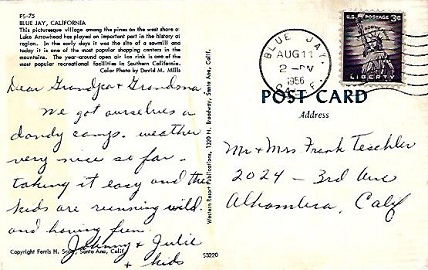 FS-75
BLUE JAY, CALIFORNIA
This picturesque village among the pines on the west shore of
Lake Arrowhead has played an important part in the history of
region. In the early days it was the site of a sawmill and
today it is one of the most popular shopping centers in the
mountains. The year-round open air ice rink is one of the
most popular recreational facilities in Southern California.
Color Photo by David M. Mills
Dear Grandpa & Grandma
We got ourselves a
dandy camp. weather
very nice so far.
taking it easy and the
kids are running wild
and having fun.
Johnny & Julie
& kids
Copyright Ferris H. Santa Ana, Calif.
S5220
Western Resort Publications, 1220 N. Broadway, Santa Ana, Calif.
BLUE JAY,
AUG 11
2 - PM
1956
CALIF.
U.S. POSTAGE 3¢
LIBERTY
POST CARD
Address
Mr & Mrs Frank Teschler
2024 - 3rd Ave
Alhambra, Calif